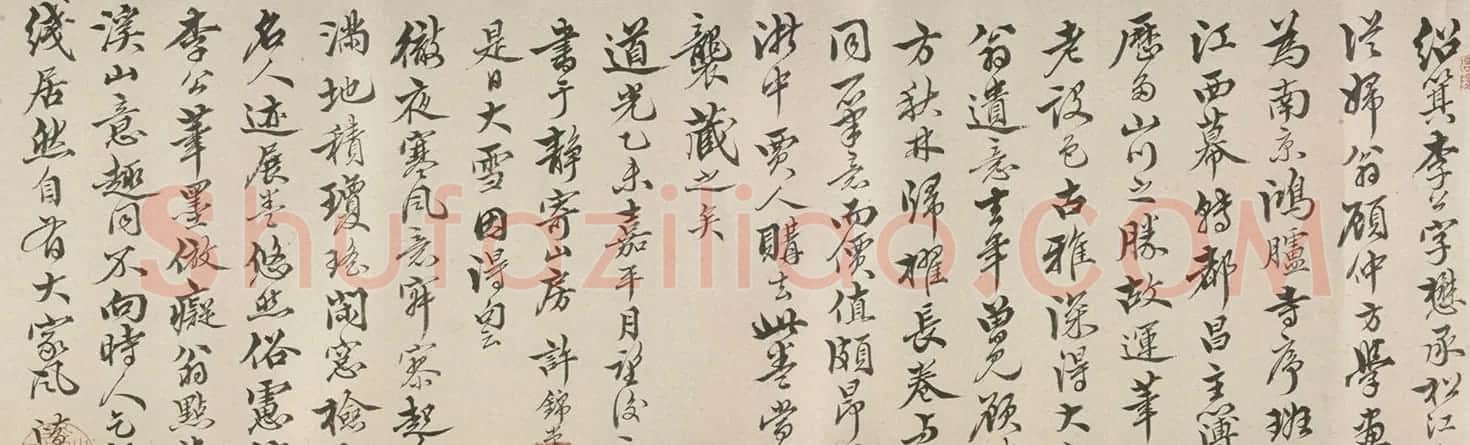 紹箕李公字懋承松江
從婦翁顧仲方學畫
為南京鴻臚寺序班
江西幕轉都昌主簿
歷名山川之勝故運筆
老設色古雅深得大
翁遺意去年曾見顧
方秋林歸櫂長卷與
同一筆意而價值頗昂
浙中賈人購去此卷當
襲藏之矣
道光乙未嘉平月望後
書于靜寄山房 許錦
是日大雪因得句云
徹夜寒風意寂寥起
滿地積瓊瑤閑窓檢
名人迹展卷悠然俗慮
李公筆墨倣癡翁點
溪山意趣同不向時人乞
殘居然自有大家風
Shufaziliao.COM